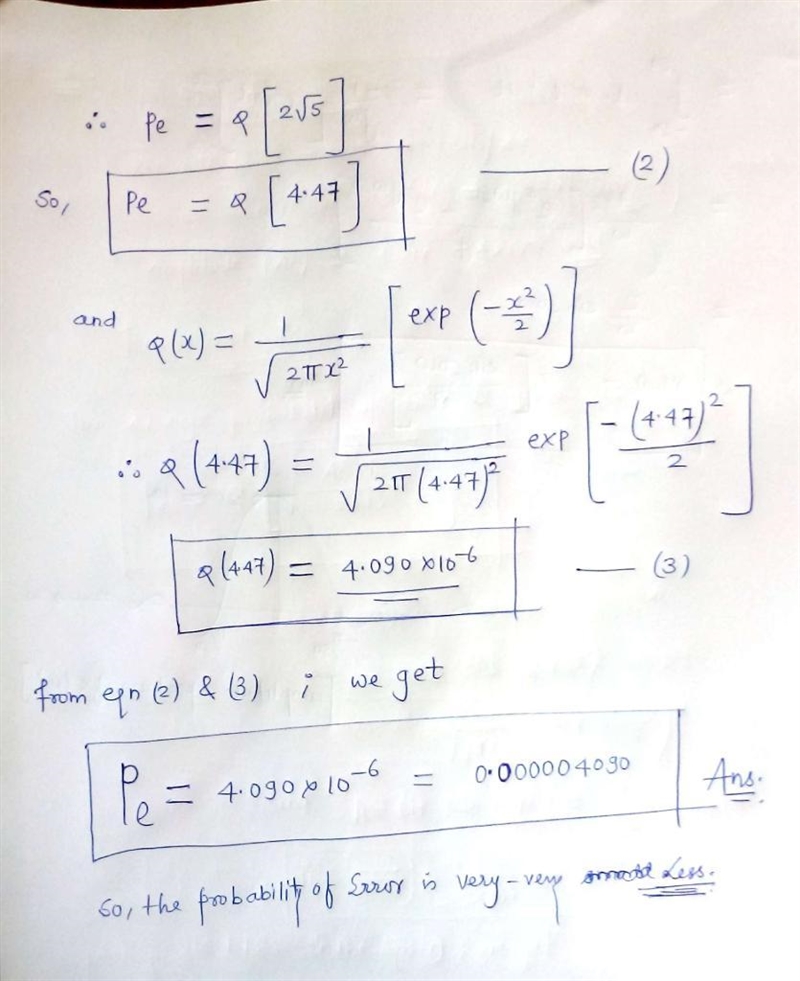 ∴ Pe = Q [2√5]
So, Pe = Q [4.47] —— (2)
and Q(x) = 1/√(2πx²) [exp (-x²/2)]
∴ Q(4.47) = 1/√(2π(4.47)²) exp [-(4.47)²/2]
Q(4.47) = 4.090 × 10⁻⁶ —— (3)
from eqn (2) & (3) ; we get
Pe = 4.090 × 10⁻⁶ = 0.000004090 Ans.
So, the probability of Error is very-very Less.